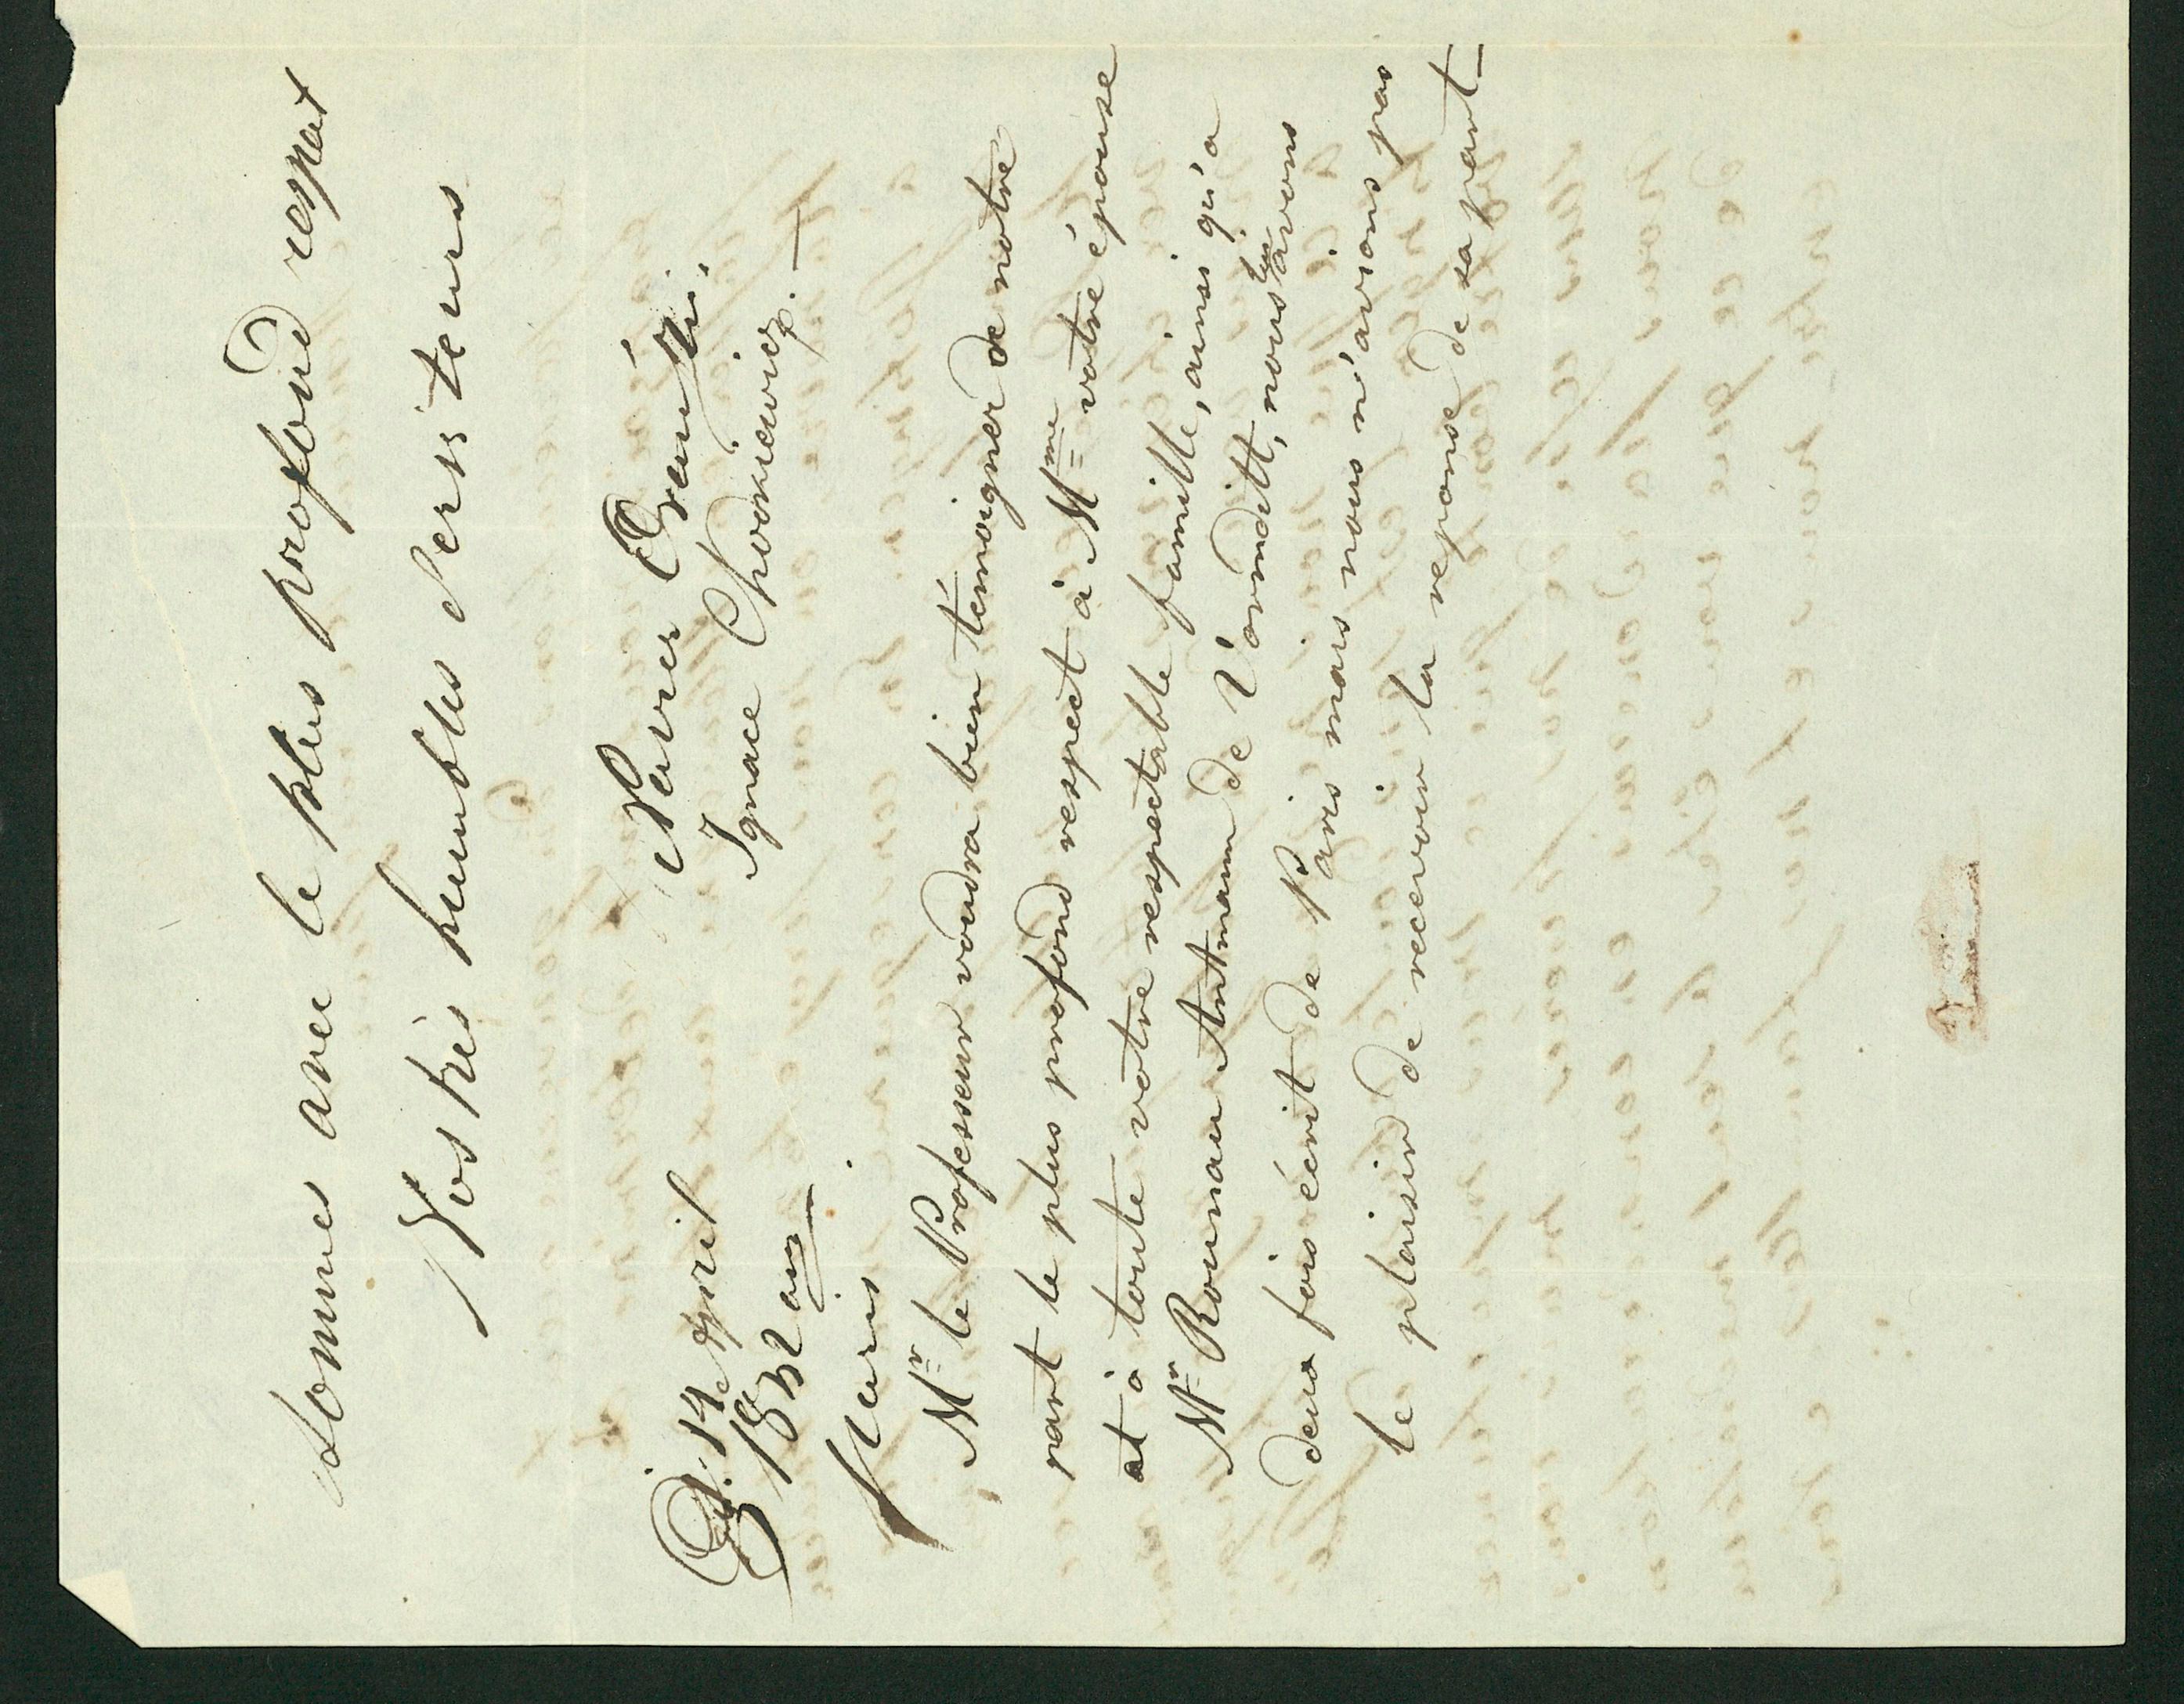 sommes avec le plus profond respect
Vos très humbles Serviteurs
Xavier
Ignace
14 Avril
1832
Paris
Mr le Professeur voudra bien témoigner de notre
part le plus profond respect à Mme votre épouse
et à toute votre respectable famille, ainsi qu'a
Mr de nous lui avons
deux fois écrit de Paris mais nous n'avions pas
le plaisir de recevoir la reponse de sa part_